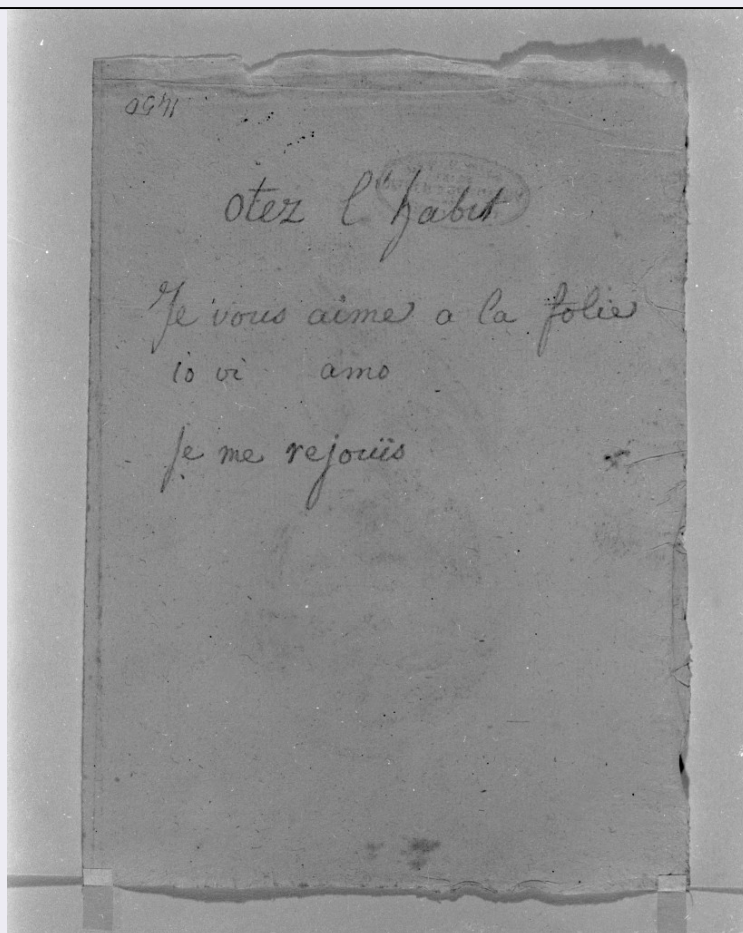 otez l'habit
Je vous aime a la folie
io vi amo
Je me rejouïs